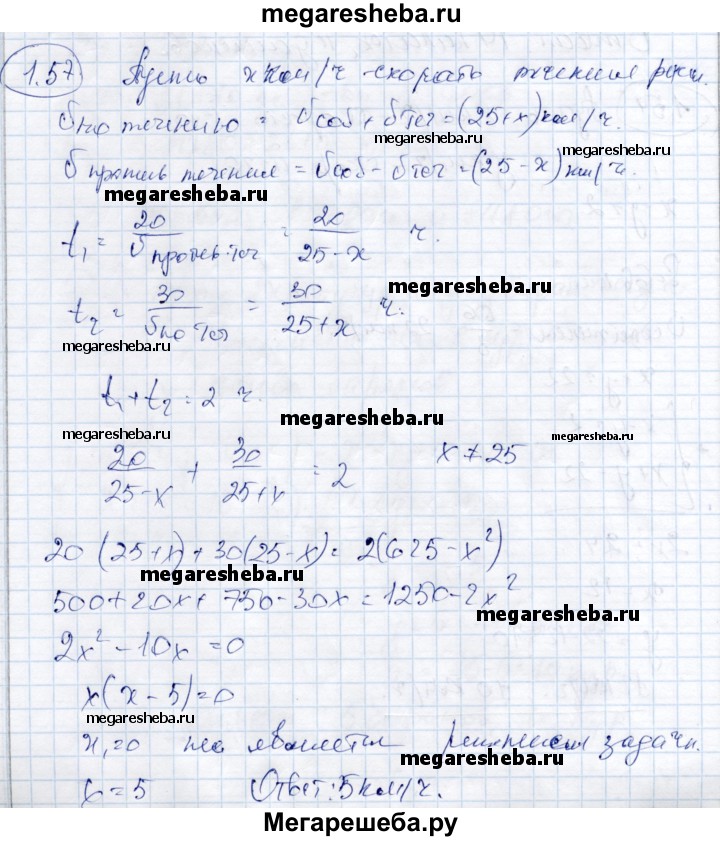 megaresheba.ru
1.57 Пусть x км/ч - скорость течения реки.
megaresheba.ru
υ по течению = υ соб + υ теч = (25+x) км/ч.
υ против течения = υ соб - υ теч = (25-x) км/ч.
megaresheba.ru
t₁ = 20/υ против теч = 20/(25-x) ч.
megaresheba.ru
t₂ = 30/υ по теч = 30/(25+x) ч.
megaresheba.ru
t₁ + t₂ = 2 ч.
megaresheba.ru
megaresheba.ru megaresheba.ru
20/(25-x) + 30/(25+x) = 2 x ≠ 25
20(25+x) + 30(25-x) = 2(625-x²)
megaresheba.ru
500+20x+750-30x = 1250-2x²
megaresheba.ru
2x² - 10x = 0
x(x-5) = 0
megaresheba.ru
x₁=0 не является решением задачи.
megaresheba.ru
x = 5 Ответ: 5 км/ч.
Мегарешеба.ру